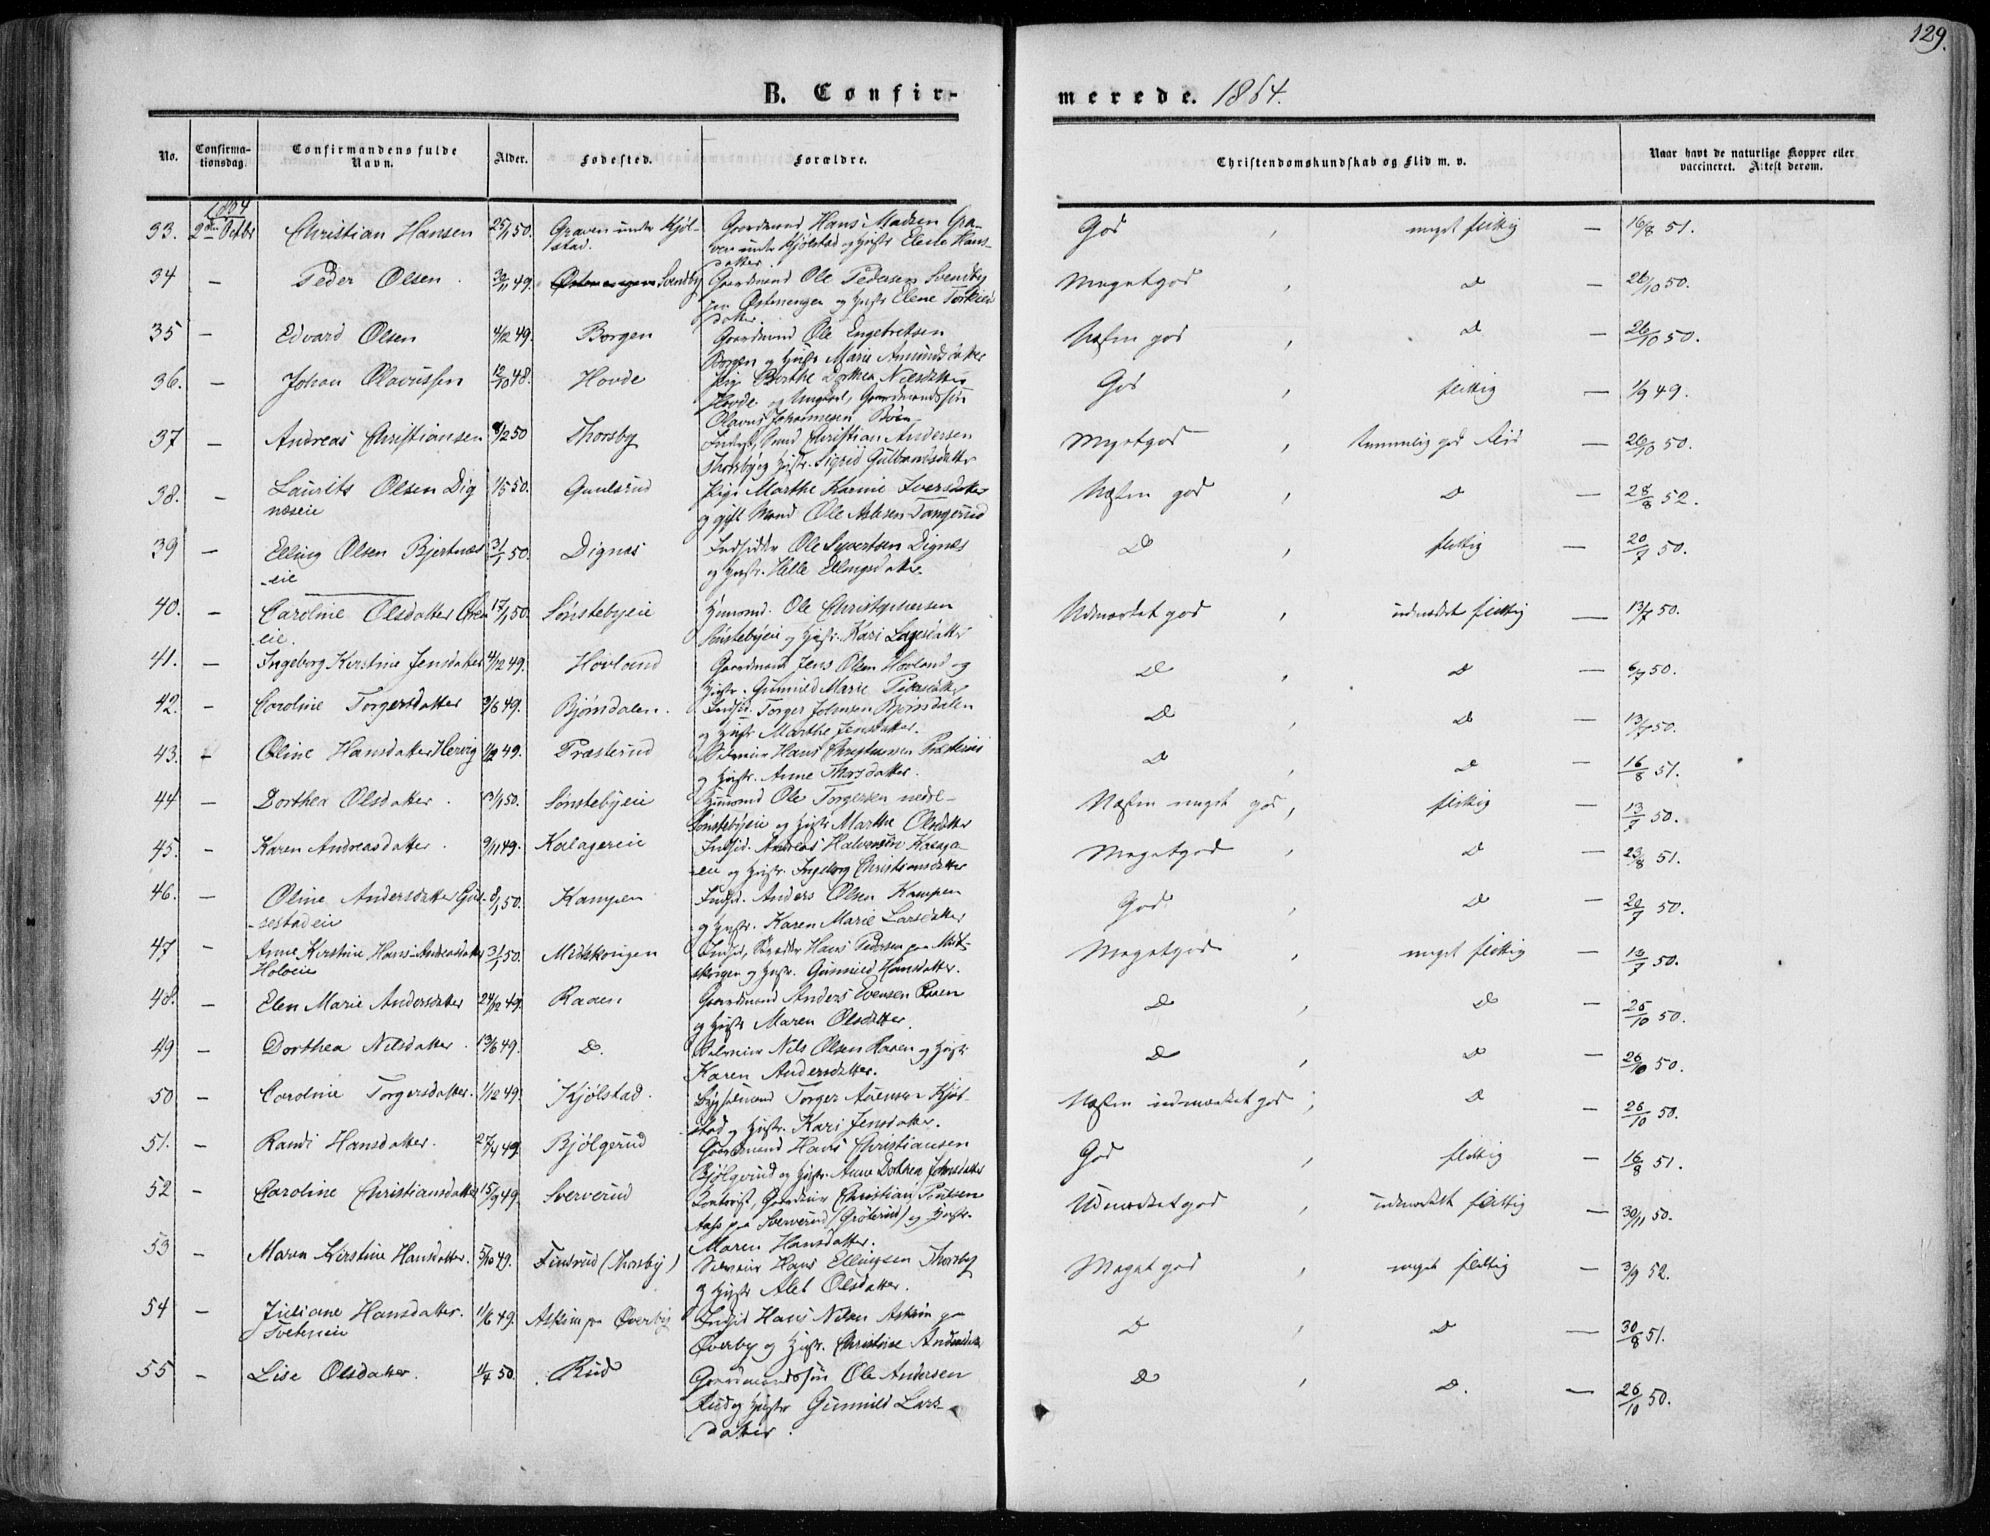 129.
B. Confir-
merede. 1864.
No.
Confirma-
tionsdag.
Confirmandens fulde
Navn.
Alder.
Fødested.
Forældre.
Christendomskundskab og Flid m. v.
Naar havt de naturlige Kopper eller
vaccineret. Attest derom.
1864
33. 2den Octbr Christian Hansen 25/1 50. Graven under Kjöl- Gaardmand Hans Madsen Gra-
stad. ven under Kjølstad og Hustr Elene Hans-
datter
God , meget flittig — 16/8 51.
34 — Peder Olsen 30/11 49. Svendby Gaardmand Ole Pedersen Svendby
Østmengen og Hustr Elene
datter.
Megetgod , D — 26/10 50.
35 — Edvard Olsen 4/12 49. Borgen Gaardmand Ole Engebretsen
Borgen og Hustr Marie Amundsdatter
Næsten god , D — 26/10 50.
36. — Johan Olavussen 12/10 48. Hovde Pige Berthe Dorthea Nilsdatter
Hovde og Ungkarl, Gaardmandssøn
Olavus Johannesen
God , flittig — 1/9 49.
37 — Andreas Christiansen 8/2 50 Thorsby Christian Andersen
Thorsby og Hustr. Sigrid Gulbrandsdatter
Megetgod , temmelig god Flid — 26/10 50.
38. — Laurits Olsen Dig 1/5 50. Gaulsrud Pige Marthe Karine Iversdatter
næseie og gift Mand Ole
Næsten god , D — 28/8 52.
39 — Elling Olsen Bjertnæs 31/1 50. Dignæs Indsidder Ole Syvertsen Dignæs
-eie og Hustr. Helle Ellingsdatter.
D , flittig — 20/7 50.
40. — Caroline Olsdatter 17/1 50. Sönstebyeie Huusmand. Ole
eie. Sönstebyeie og Hustr. Kari
Udmærket god , udmærket flittig — 13/7 50.
41. — Ingeborg Kirstine Jensdatter 4/12 49. Hovland Gaardmand Jens Olsen Hovland og
Hustr. Gunnild Marie Pedersdatter
D , D — 6/7 50.
42. — Caroline Torgersdatter 9/6 49. Bjørndalen. Indsid. Torger Johnsen Bjørndalen
og Hustr Marthe Jensdatter.
D , D — 13/7 50.
43. — Oline Hansdatter 1/9 49. Præsterud Selveier Hans Christensen Præsterud
og Hustr. Anne Thorsdatter.
D , D — 16/8 51.
44 — Dorthea Olsdatter 13/1 50. Sönstebyeie Huusmand Ole Torgersen nedre-
Sönstebyeie og Hustr Marthe Olsdatter
Næsten meget god , flittig — 13/7 50.
45. — Karen Andreasdatter 9/11 49. Kalagereie Indsid. Andreas Halvorsen
eie og Hustr. Ingeborg Christiansdatter
Megetgod , D — 23/8 51.
46. — Oline Andersdatter 8/1 50. Kampen Indsid. Anders Olsen Kampen
-sestadeie og Hustr. Karen Marie Larsdatter
God , D — 20/7 50.
47 — Anne Kirstine Hans-Andreasdatter 31/1 50. Midtskougen Indsid, Skrædder Hans Pedersen paa Midt-
Holeeie skougen og Hustr. Gunnild Hansdatter.
Megetgod , meget flittig — 13/7 50.
48. — Elen Marie Andersdatter 24/12 49. Raaen Gaardmand Anders Evensen Raaen
og Hustr Maren Olsdatter.
D , D — 26/10 50.
49 — Dorthea Nilsdatter 13/6 49. D. Selveier Nils Olsen Raaen og Hustr
Karen Andersdatter.
D , D — 26/10 50.
50 — Caroline Torgersdatter. 1/12 49. Kjölstad. Bygselmand Torger Kjöl-
stad og Hustr. Kari Jensdatter.
Næsten udmærket god , D — 26/10 50.
51. — Randi Hansdatter. 27/4 49 Bjölgerud Gaardmand Hans Christiansen
Bjölgerud og Hustr. Anne Dorthea Johnsdatter
God , flittig — 16/8 51.
52 — Caroline Christiansdatter 15/9 49. Sververud Gaardeier Christian
Aas paa Sververud (Grøterud) og Hustr.
Maren Hansdatter.
Udmærket god , udmærket flittig — 30/11 50.
53 — Maren Kirstine Hansdatter. 5/10 49. Finsrud (Thorsby) Selveier Hans Ellingsen Thorsby
og Hustr Alet Olsdatter.
Meget god , meget flittig — 3/9 52.
54 — Juliane Hansdatter. 11/6 49. Askim paa Överby Indsid Hans Nilsen Askim paa
Tveteneie Överby og Hustr. Christine
D , D — 30/8 51.
55 — Lise Olsdatter. 1/7 50. Rud Gaardmandssön Ole Andersen
Rud og Hustr Gunnild Lars-
datter.
D , D. — 26/10 50.